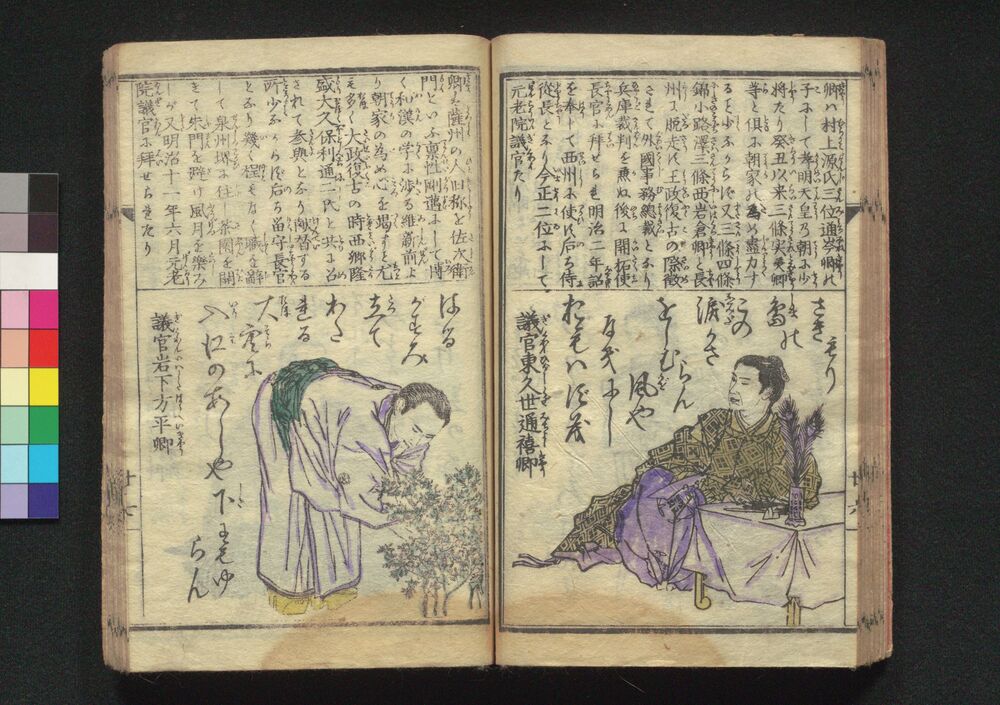 卿ハ村上源氏三位通岑卿の
子にして孝明天皇の朝に少
将たり癸丑以来三條実美卿
等と倶に朝家の為め尽力す
る事少なからず又三條四條
錦小路澤三條西岩倉卿と長
州に脱走す王政復古の際徴
されて外國事務総裁となり
兵庫裁判を兼ね後に開拓使
長官に拝せらる明治二年詔
を奉じて西州に使す后ち侍
従長となり今正二位にして
元老院議官たり
さきもり
島の
この
涙や
をしむらん
風や
議官東久世通禧卿
廿六
卿ハ薩州の人旧称を佐次衛
門といふ禀性剛邁にして博
く和漢の学に渉る維新前よ
り朝家の為め心を竭すを尤
も多く大政復古の時西郷隆
盛大久保利通二氏と共に召
されて参與となり献替する
所少なからず后ち留守長官
となり幾く程もなく職を辞
して泉州堺に住し茶園を開
きて朱門を避け風月を楽み
しが又明治十一年六月元老
院議官に拝せられたり
はる
がすみ
立て
わた
れる
大
空に
入江のあしや下もゆ
らん
議官岩下方平卿
廿七